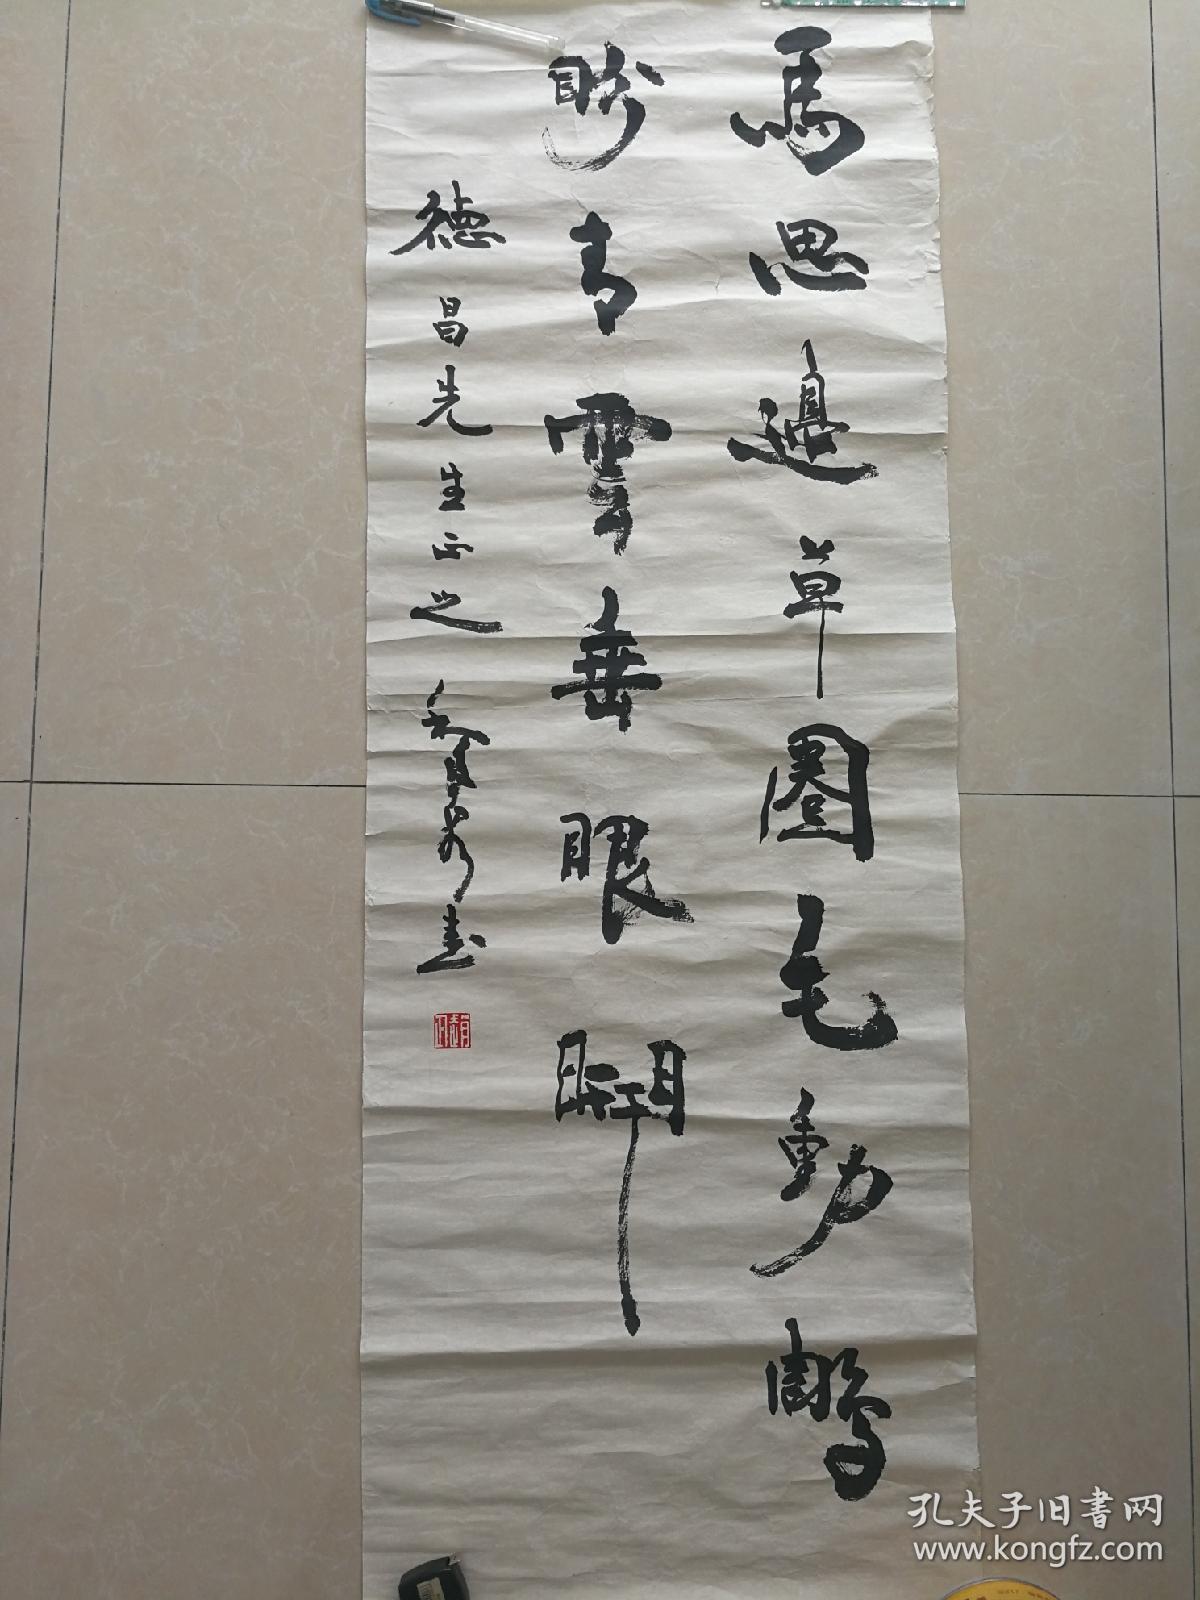 馬思邊草圈毛動鵰
盼青雲垂眼開
德昌先生正之 書
孔夫子旧书网
www.kongfz.com